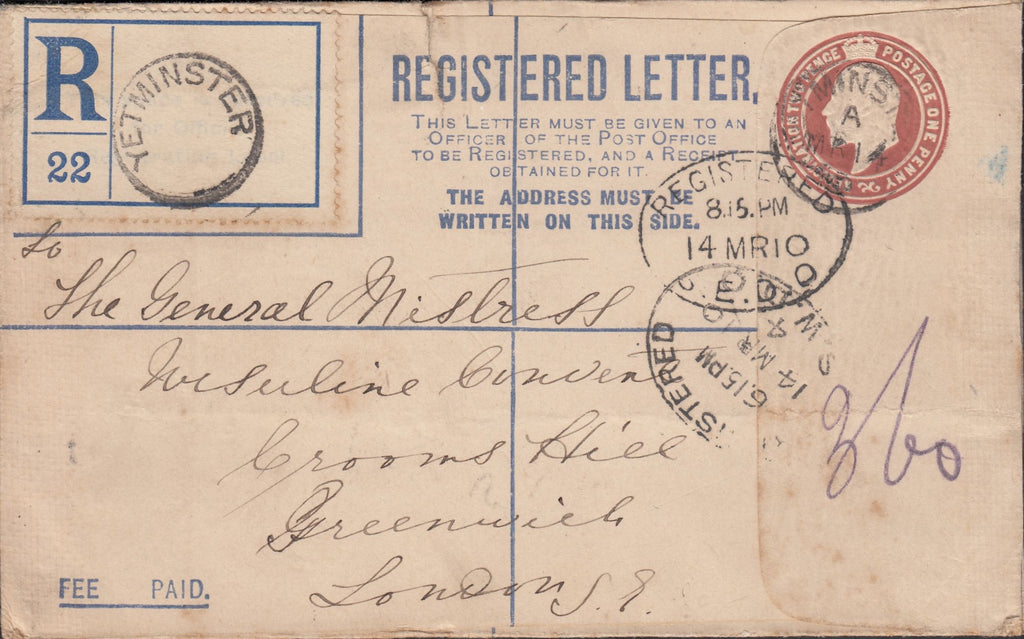 R
22
YETMINSTER
REGISTERED LETTER.
THIS LETTER MUST BE GIVEN TO AN
OFFICER OF THE POST OFFICE
TO BE REGISTERED, AND A RECEIPT
OBTAINED FOR IT.
THE ADDRESS MUST BE
WRITTEN ON THIS SIDE.
POSTAGE ONE PENNY
TWOPENCE
A
MR 14
REGISTERED
8.15.PM
14 MR 10
E.D.O
6.15PM
14 MR 10
To
The General Mistress
Ursuline Convent
Crooms Hill
Greenwich
London S.E.
360
FEE PAID.